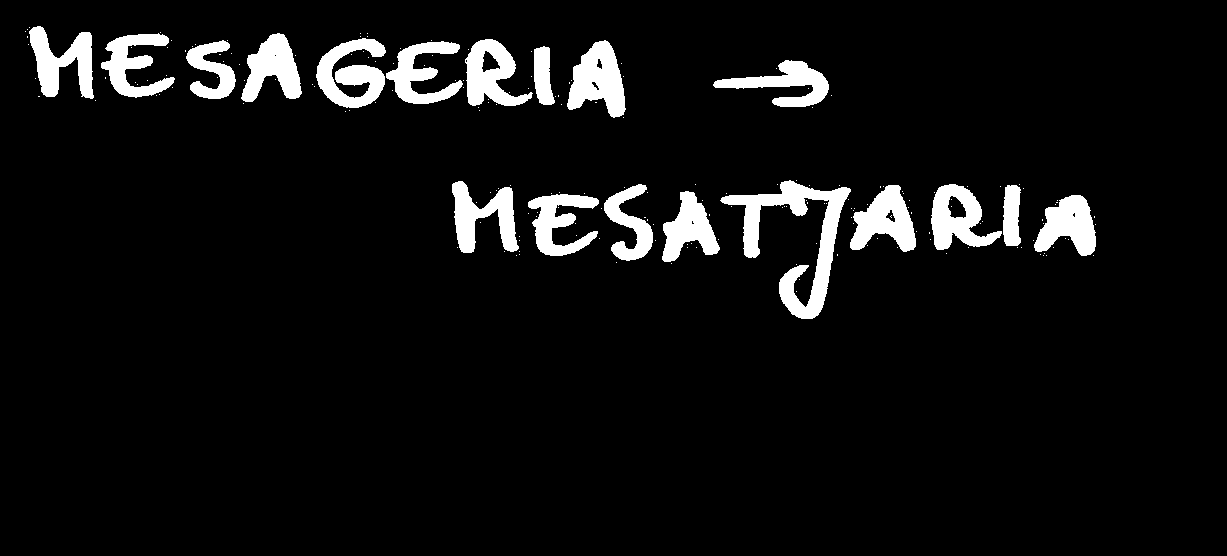 MESAGERIA →
MESATJARIA